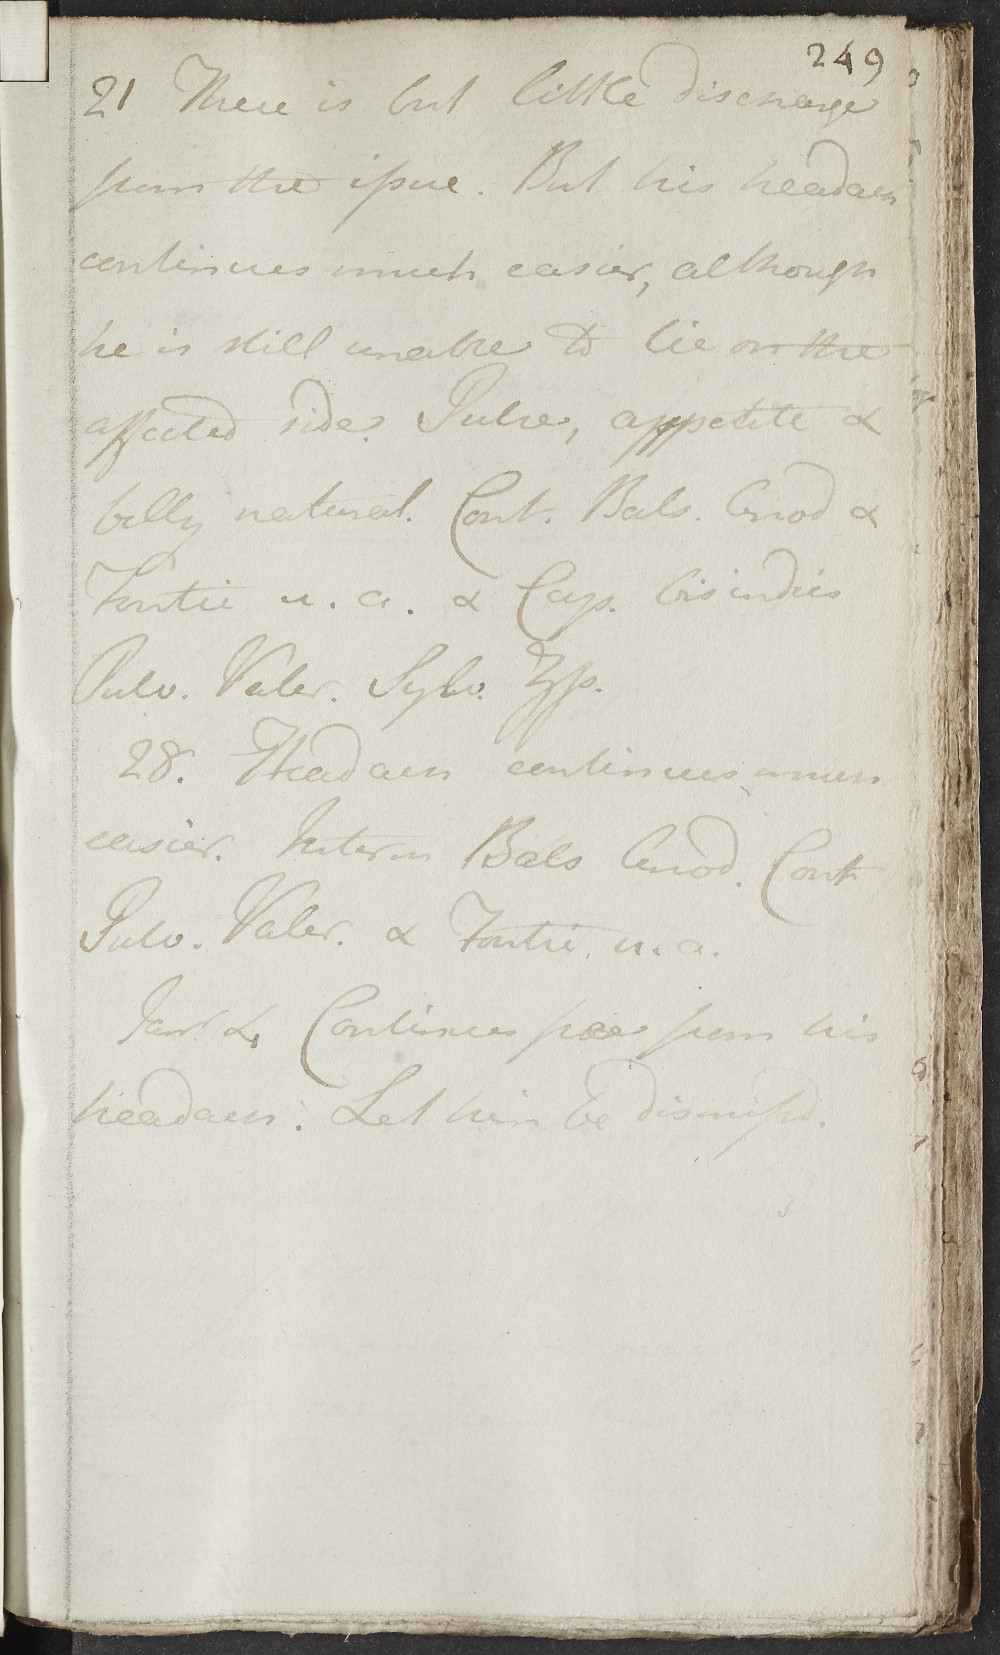 249
21 There is but little discharge
from the issue. But his headach
continues much easier, although
he is still unable to lie on the
affected side. Pulse, appetite &
belly natural. Cont. Bals. Anod &
Fontic. u. a. & Cap. bis indies
Pulv. Valer. Sylv. ʒss.
28. Headach continues much
easier. Interm Bals Anod. Cont
Pulv. Valer. & Fontic. u. a.
Janr 4 Continues free from his
headach. Let him be dismissd.